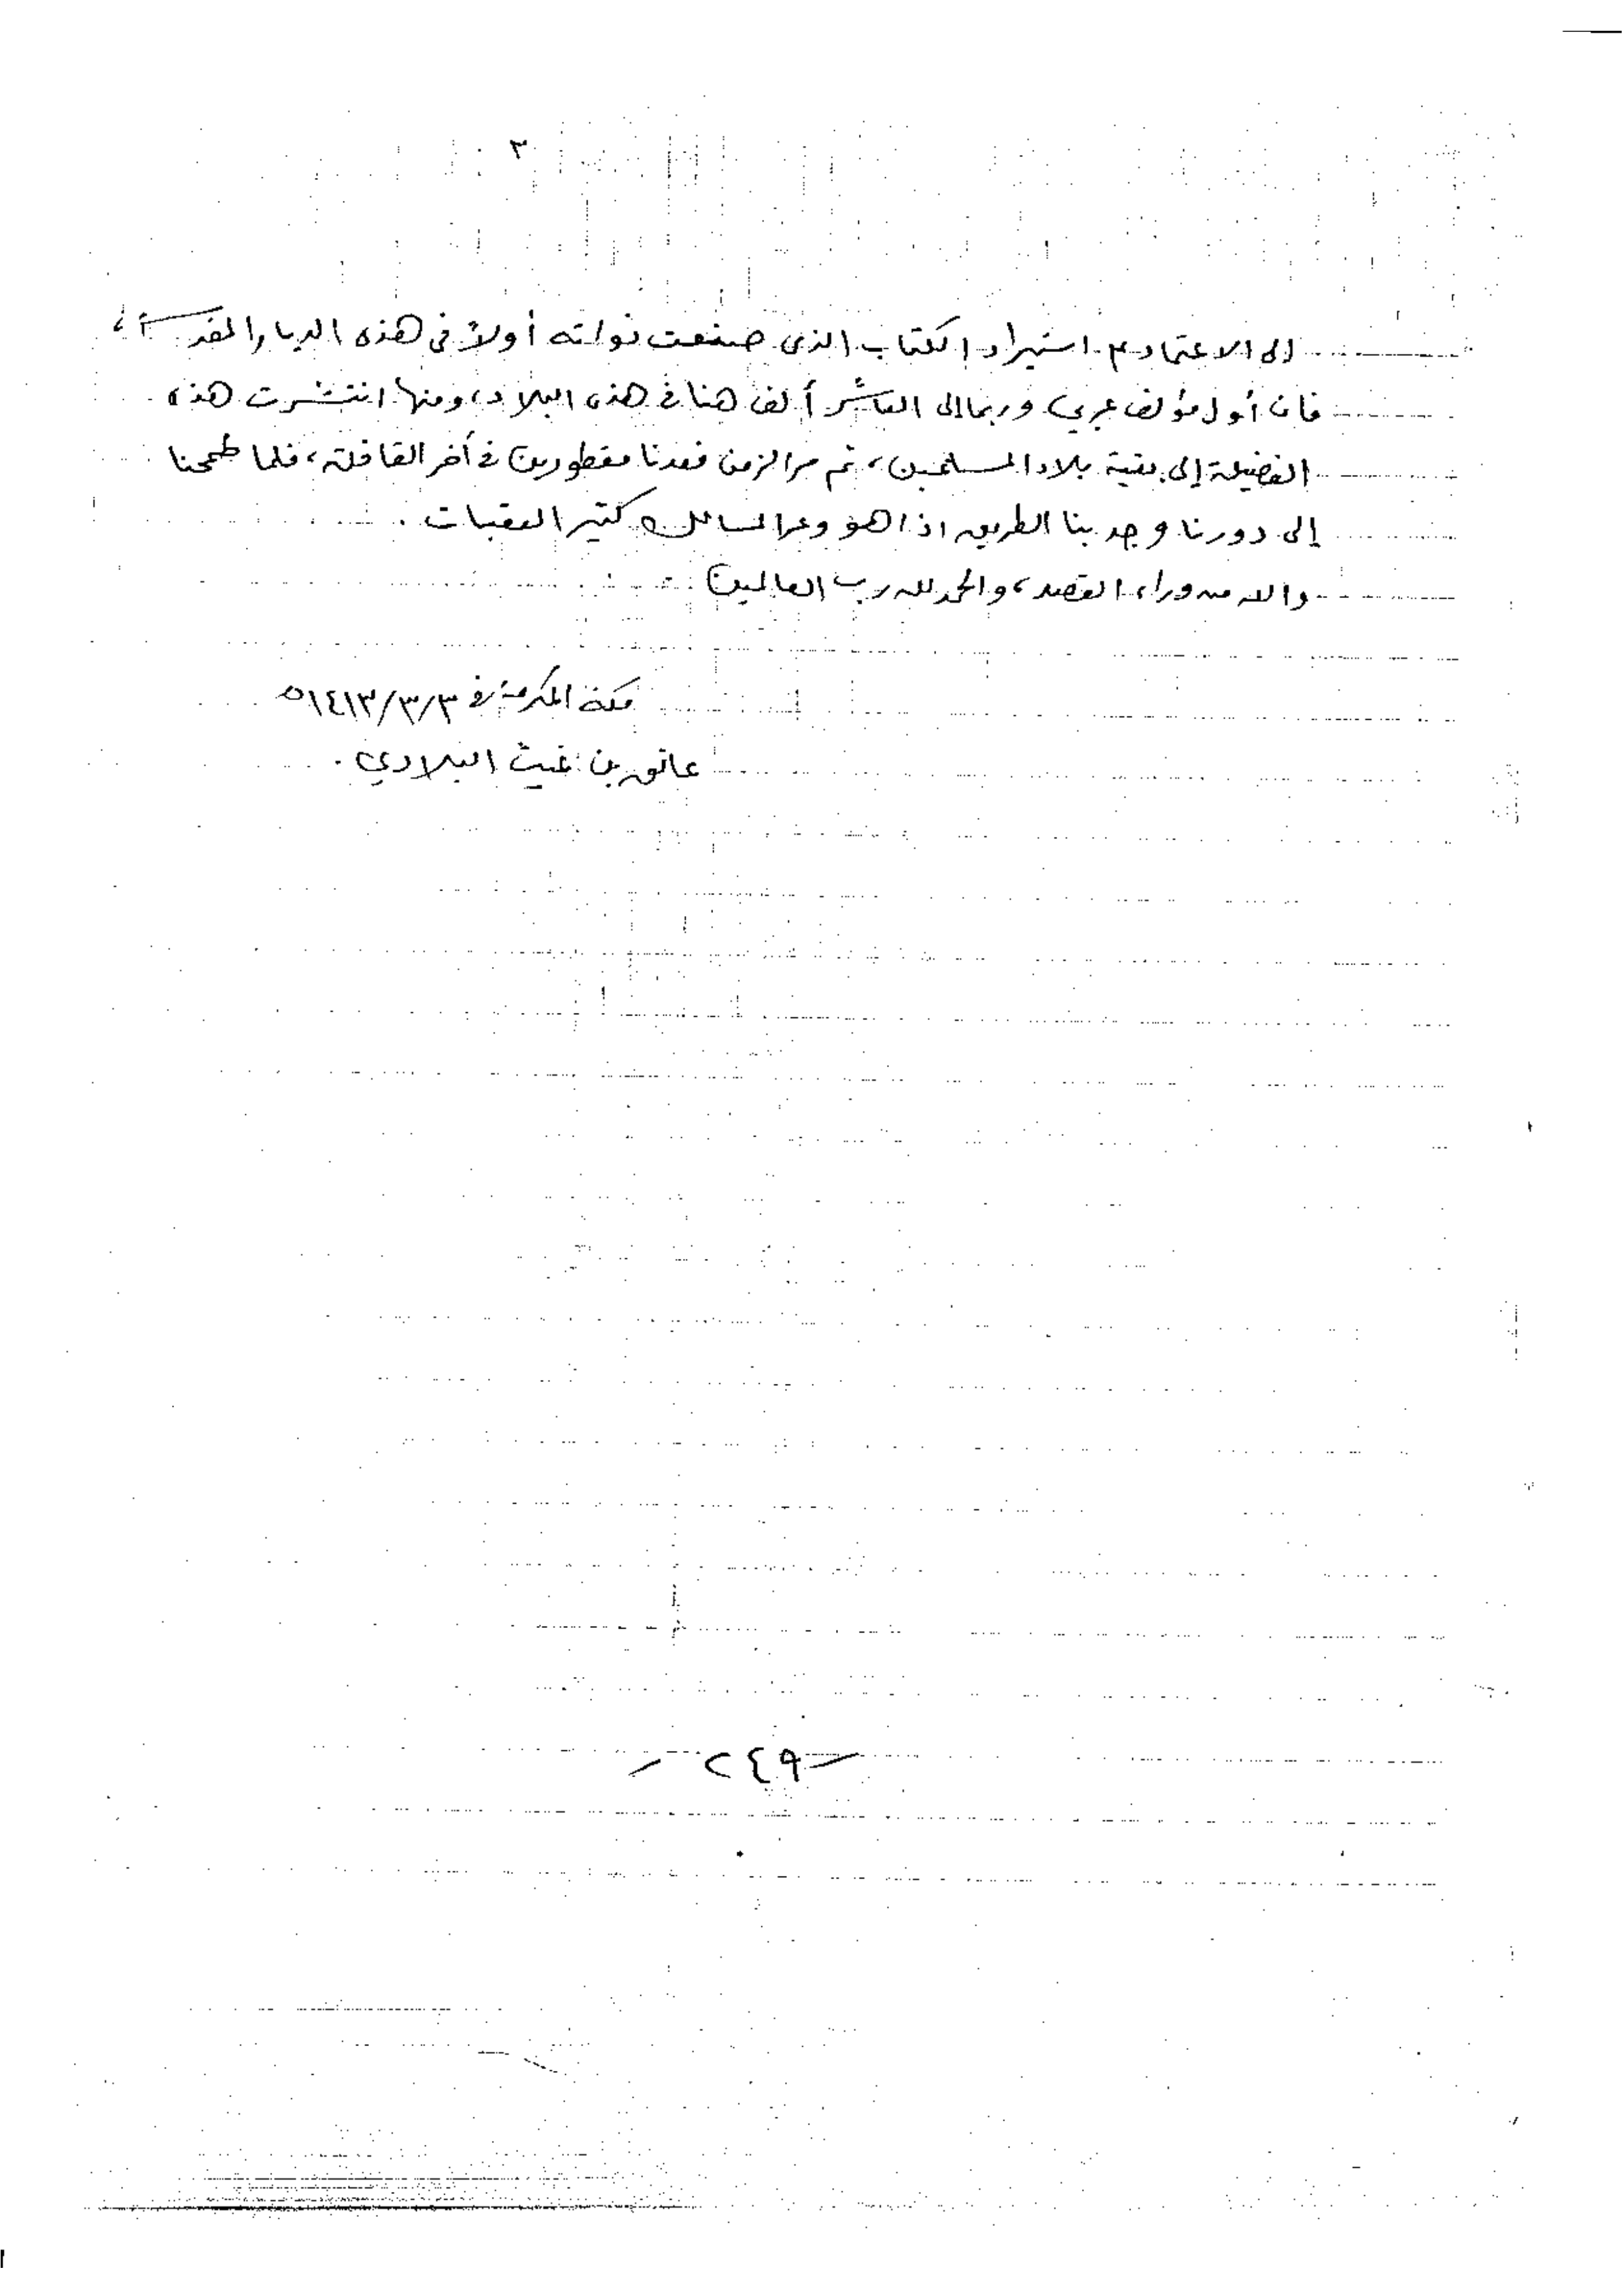 ٣
إلى الاعتماد م استيراد الكتاب الذي صنعت نواته أولاً في هذه الديار المقدسة،
فان أول مؤلف عربي وربما إلى العاشر أُلف هنا في هذه البلاد، ومنها انتشرت هذه
الفضيلة إلى بقية بلاد المسلمين، ثم مر الزمن فعدنا مقطورين في آخر القافلة، فلما طمحنا
إلى دورنا وجد بنا الطريق اذا هو وعر المسالك كثير العقبات .
والله من وراء القصد، والحمد لله رب العالمين
مكة المكرمة في ١٤١٣/٣/٣ه
عاتق بن غيث البلادي .
- ٢٤٩ -